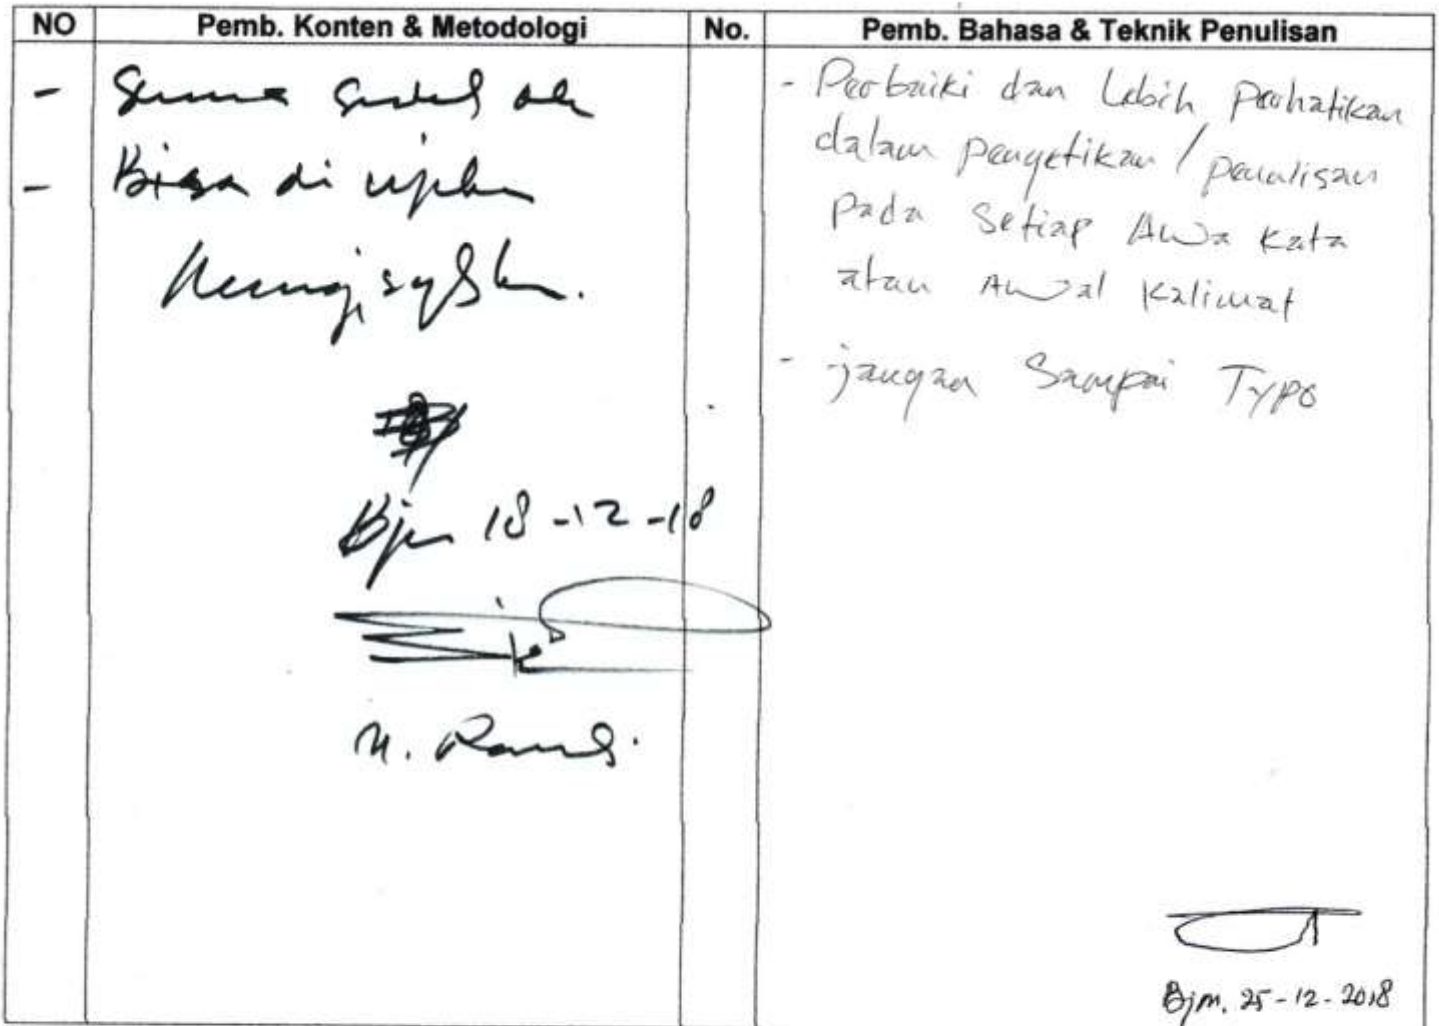 NO
Pemb. Konten & Metodologi
No.
Pemb. Bahasa & Teknik Penulisan
- Semua sudah
- Bisa di
Bjm 18-12-18
- Perbaiki dan Lebih perhatikan
dalam pengetikan / penulisan
pada Setiap Awa Kata
atau Awal Kalimat
- jangan Sampai Typo
Bjm, 25-12-2018